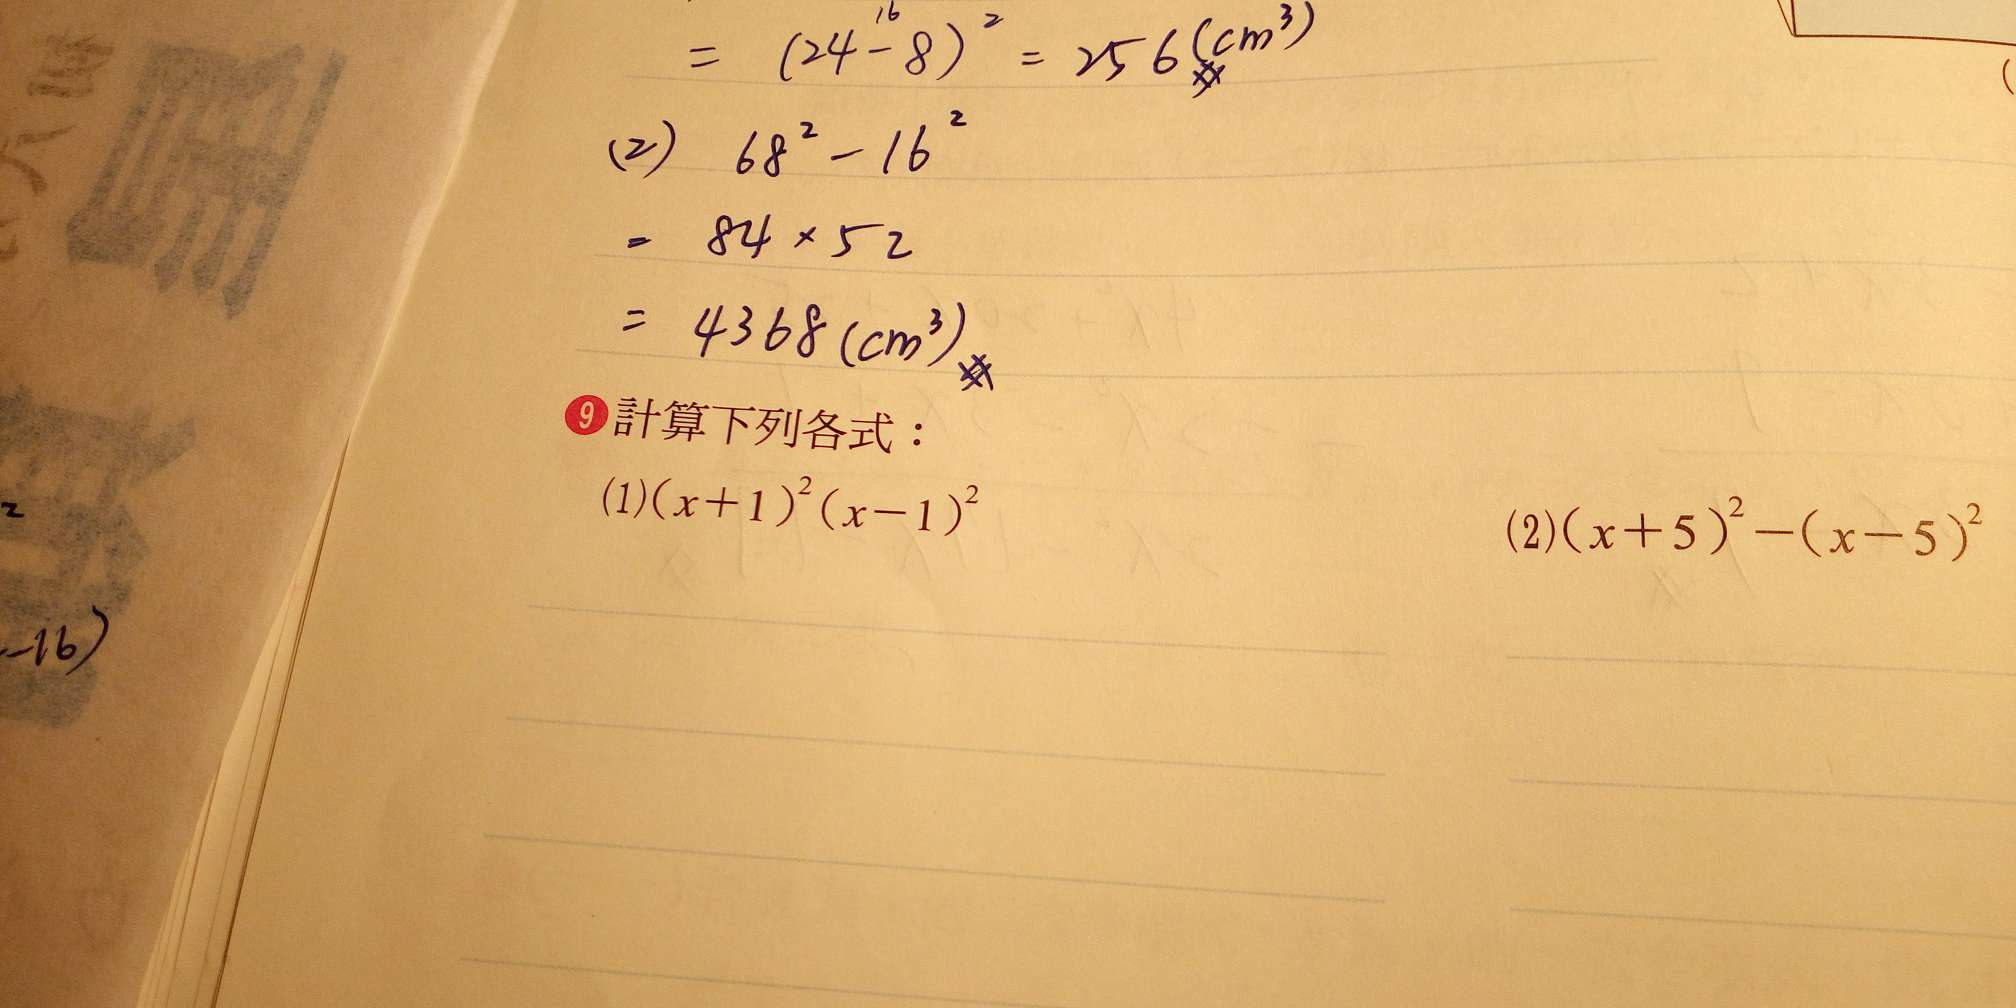 = (24-8)² = 256(cm³)
16
(2) 68² - 16²
= 84 × 52
= 4368(cm³)
9 計算下列各式：
(1)(x+1)²(x-1)²
(2)(x+5)²-(x-5)²
2
-16)